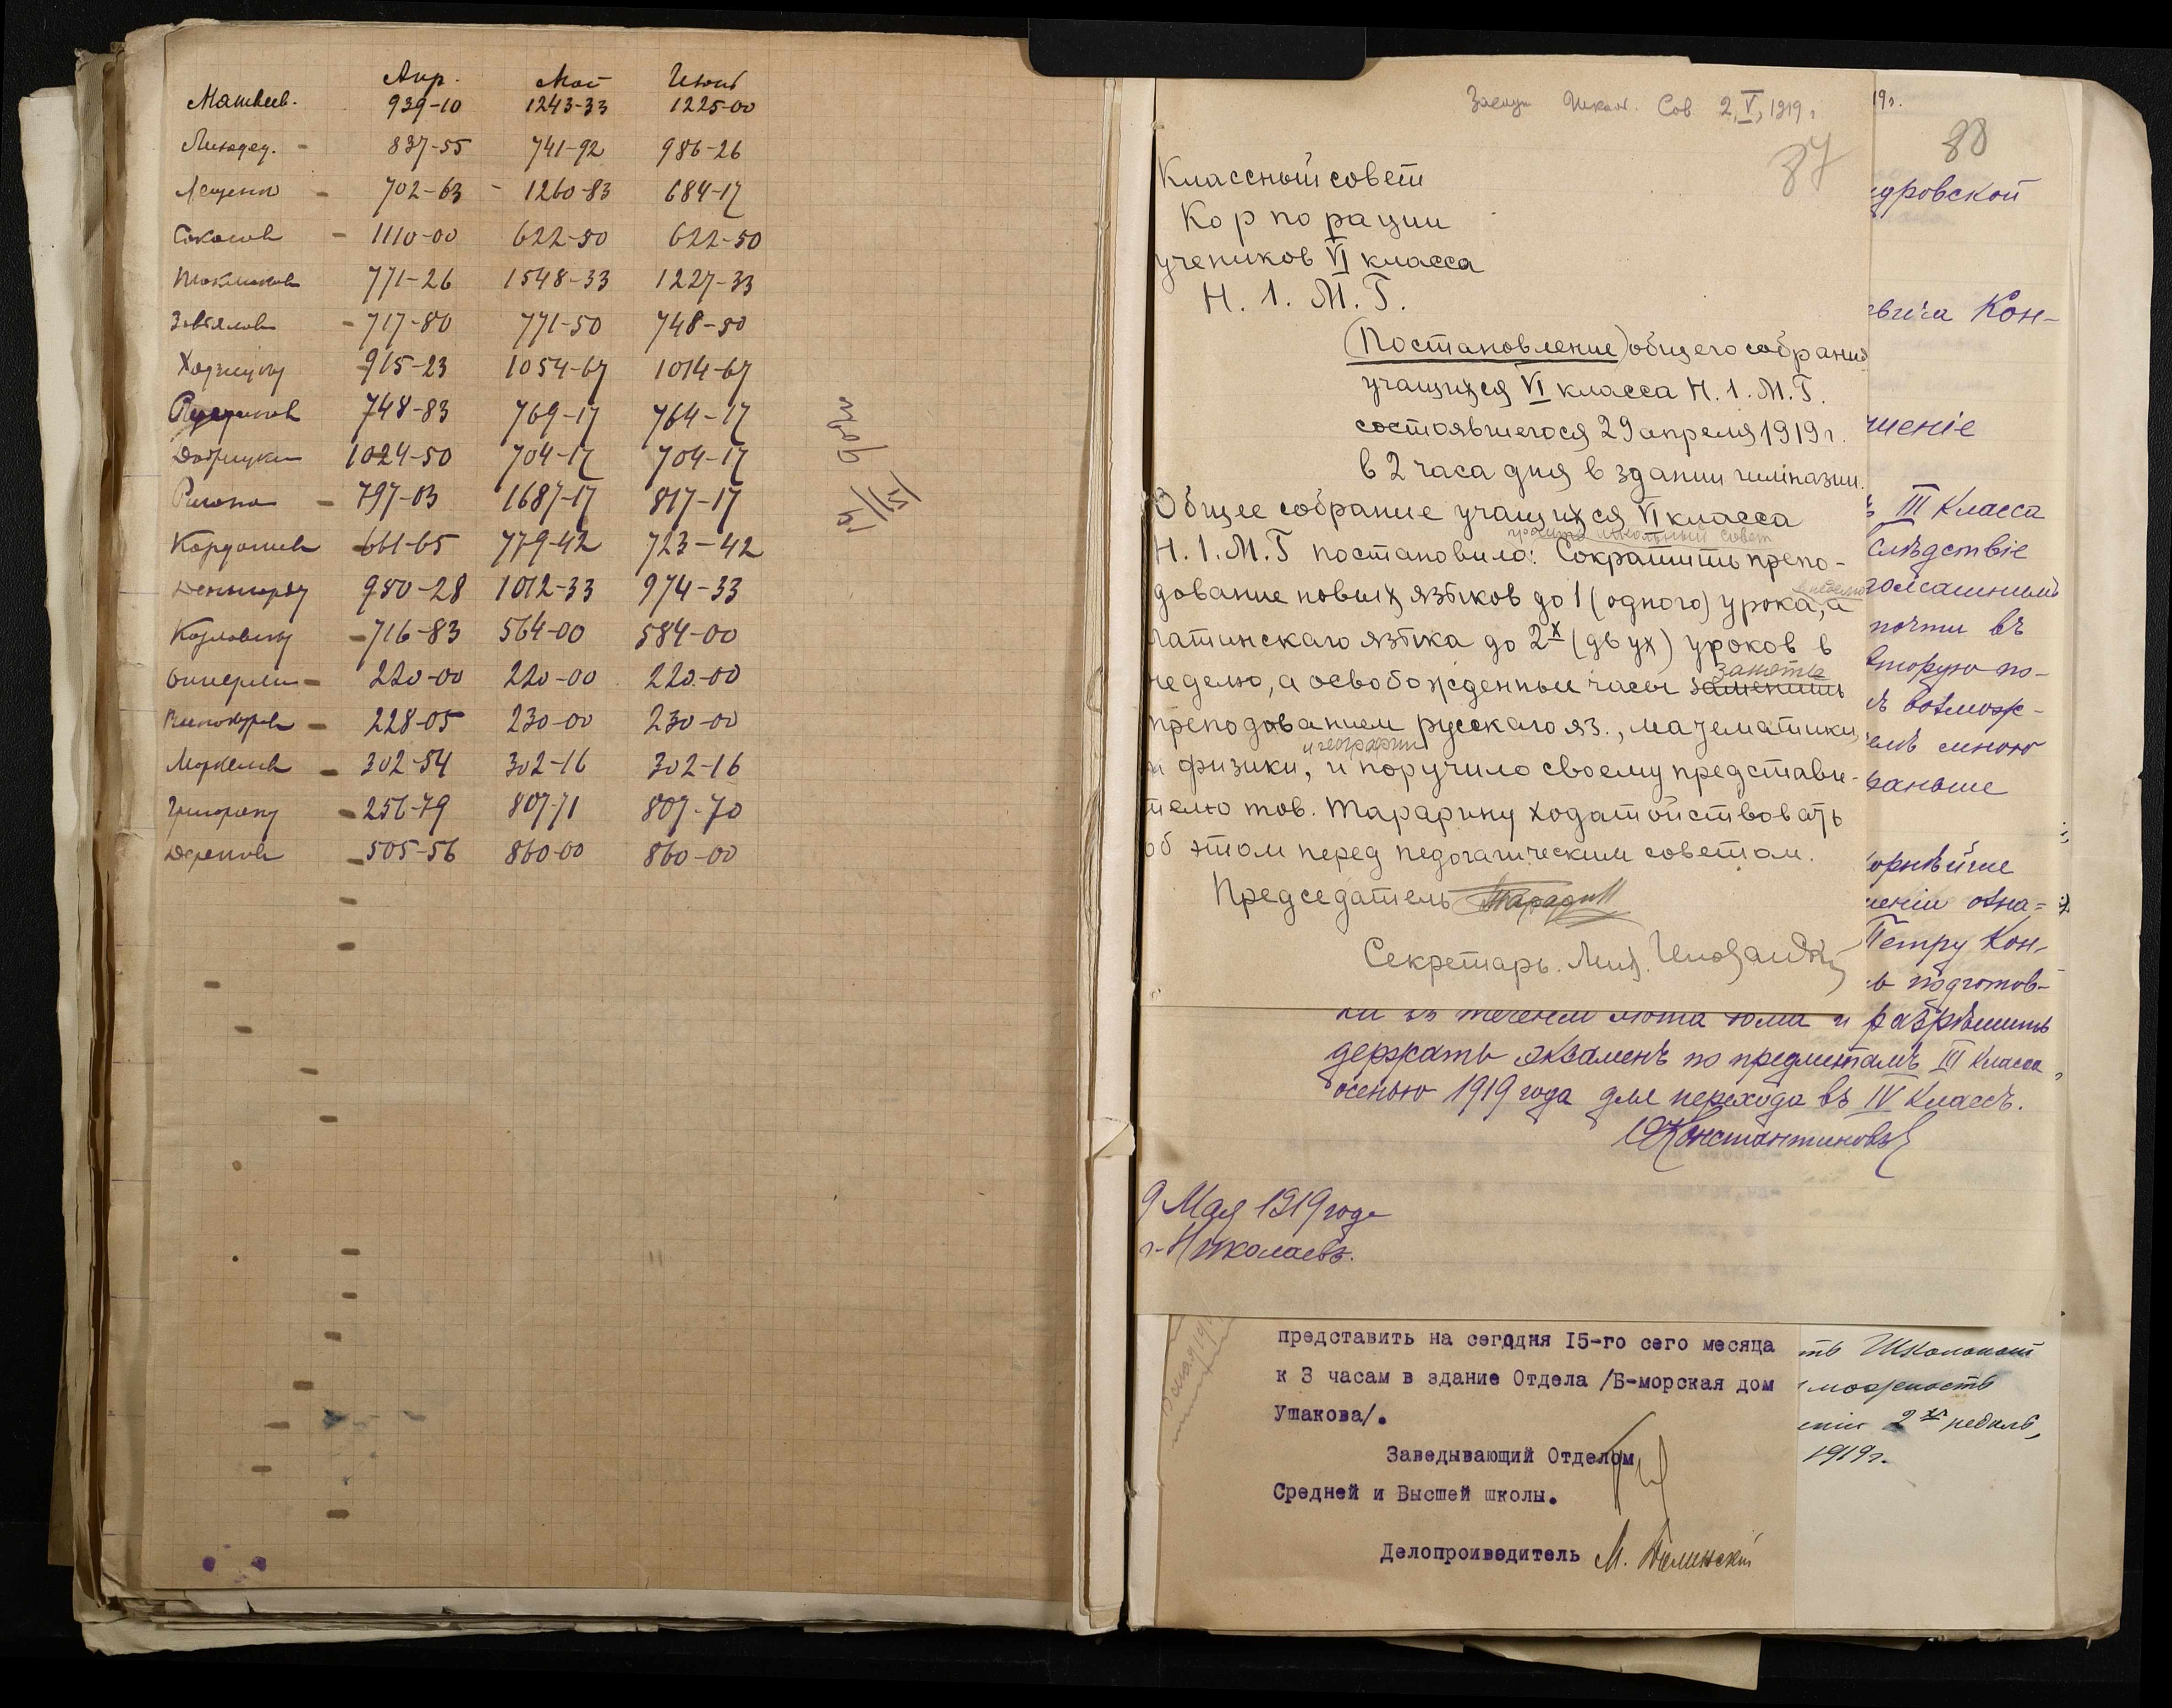 Апр. Май Июнь
Матвеев. 939-10 1243-33 1225-00
837-55 741-92 986-26
Лещенко - 702-63 - 1260-83 684-17
Соколов - 1110-00 622-50 622-50
771-26 1548-33 1227-33
Завьялов - 717-80 771-50 748-50
915-23 1054-67 1014-67
748-83 769-17 764-17
1024-50 704-17 704-17
- 797-03 1687-17 817-17
661-65 779-42 723-42
950-28 1012-33 974-33
Козловску - 716-83 564-00 584-00
- 220-00 220-00 220-00
Винокуров - 228-05 230-00 230-00
- 302-54 302-16 302-16
- 256-79 807-71 807-70
- 505-56 860-00 860-00
Школ. Сов. 2, V, 1919 г
87
Классный совет
Корпорации
учеников VI класса
Н. 1. М. Г.
(Постановление) общего собрания
учащихся VI класса Н. 1. М. Г.
состоявшегося 29 апреля 1919 г.
в 2 часа дня в здании гимназии.
Общее собрание учащихся VI класса
просить школьный совет
Н. 1. М. Г постановило: Сократить препо-
дование новых языков до 1 (одного) урока, а
латинскаго языка до 2х (двух) уроков в
заняты
неделю, а освобожденные часы заменить
преподованием русскаго яз., математики,
и географии
и физики, и поручило своему представи-
телю тов. Тарарину ходатойствовать
об этом перед педогагическим советом.
Председатель Тарарин
Секретарь. Мих.
19г.
88
дровской
евича Кон-
шеніе
III Класса
слѣдствіе
почти въ
вторую по-
возмож-
мною
раньше
орнѣйше
озна=
Петру Кон-
подготов-
ки въ теченіи лѣта и разрѣшить
держать экзаменъ по предметамъ III Класса,
осенью 1919 года для перехода въ IV Классъ.
Константиновъ
9 Мая 1919 года
г. Николаевъ.
представить на сегодня 15-го сего месяца
к 3 часам в здание Отдела /Б-морская дом
Ушакова/.
Заведывающий Отделом
Средней и Высшей школы.
Делопроиведитель М. Белинскій
ть Школьной
2х недель,
1919г.